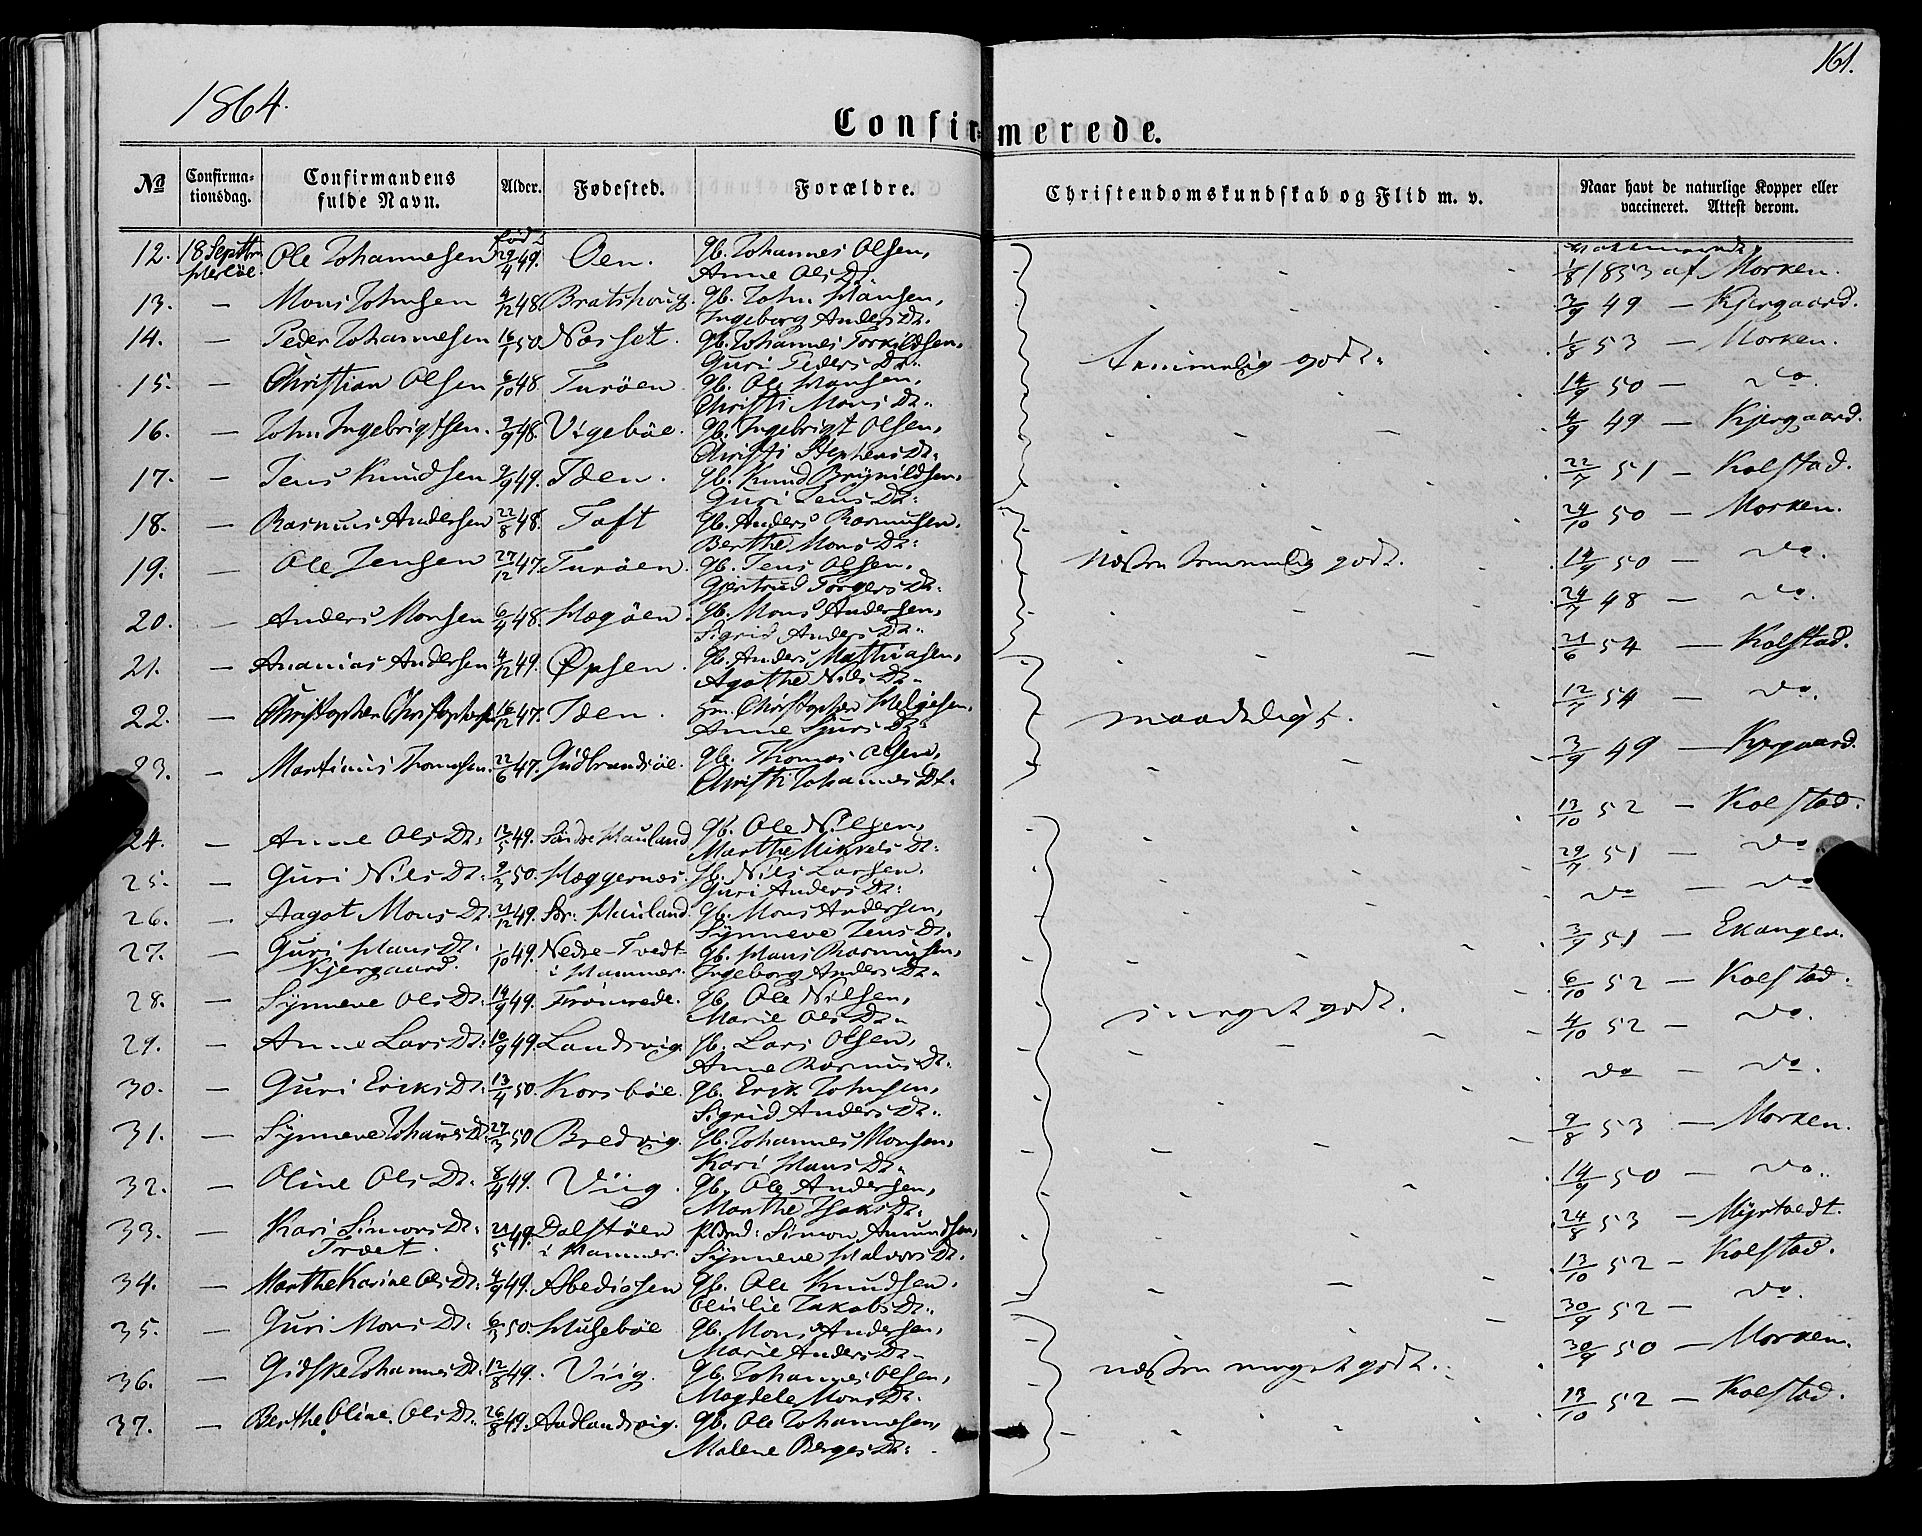 161.
1864.
Confirmerede.
No Confirmationsdag. Confirmandens fulde Navn. Alder. Fødested. Forældre. Christendomskundskab og Flid m. v. Naar havt de naturlige Kopper eller vaccineret. Attest derom.
12. 18 Septbr Ole Johannesen født 29/4 49. Oen. Gb. Johannes Olsen, Anne Olsdt. 1/8 1853 af Morken.
13. — Mons Johnsen 4/12 48. Bratshoug. Gb. John Hansen, Ingeborg Andersdt. 3/9 49 — Kjergaard.
14. — Peder Johannesen 16/1 50. Nesset. Gb. Johannes Torkildsen, Guri Pedersdt. Temmelig godt. 1/8 53 — Morken.
15. — Christian Olsen 6/10 48. Turöen. Gb. Ole Hansen, Christi Monsdt. 14/9 50 — do.
16. — John Ingebrigtsen. 7/9 48. Vigebøe. Gb. Ingebrigt Olsen, Christi Stephensdt. 4/9 49 — Kjergaard.
17. — Jens Knudsen 9/9 49. Iden. Gb. Knud Brynildsen, Guri Jensdt. 22/7 51 — Kolstad.
18. — Rasmus Andersen 22/8 48. Toft Gb. Anders Rasmusen, Berthe Monsdt. 24/10 50 — Morken.
19. — Ole Jensen 27/12 47. Turöen. Gb. Jens Olsen, Gjertrud Torgersdt. Næsten temmelig godt. 14/9 50 — do.
20. — Anders Monsen 6/4 48. Hegöen. Gb. Mons Andersen, Sigrid Andersdt. 24/7 48 — do.
21. — Ananias Andersen 4/12 49. Øpsen. Gb. Anders Mathiasen, Agathe Nilsdt. 21/6 54 — Kolstad.
22. — Christopher Christophersen 16/12 47. Iden. Hm. Christopher Helgesen, Anne Sjursdt. maadeligt. 12/7 54 — do.
23. — Martinus Thomasen. 22/6 47. Gudbrandsöe. Gb. Thomas Olsen, Christi Johannesdt. 3/9 49 — Kjergaard.
24. — Anne Olsdt. 12/5 49. Søndre Hauland Gb. Ole Nilsen, Marthe Mikkelsdt. 13/10 52 — Kolstad.
25. — Guri Nilsdt. 9/3 50. Heggernæs. Gb. Nils Larsen. Guri Andersdt. 29/7 51 — do
26. — Aagot Monsdt. 21/12 49. Sør. Hauland. Gb. Mons Andersen, Synneve Jensdt. do — do
27. — Guri Hansdt. Kjergaard. 1/10 49. Nedre-Tvedt i Hammer. Gb. Hans Rasmusen, Ingeborg Andersdt. 3/7 51 — Ekanger.
28. — Synneve Olsdt. 14/9 49. Gb. Ole Nilsen, Marie Olsdt. meget godt. 6/10 52 — Kolstad.
29. — Anne Larsdt. 10/9 49. Landsvig. Gb. Lars Olsen, Anne Rasmusdt. 4/10 52 — do.
30. — Guri Eriksdt. 13/4 50. Korsbøe. Gb. Erik Johnsen, Sigrid Andersdt. do — do.
31. — Synneve Johansdt. 27/3 50 Bredvig. Gb. Johannes Monsen, Kari Hansdt. 9/8 53 — Morken.
32. — Oline Olsdt. 8/4 49. Viig. Gb. Ole Andersen, Marthe Isaksdt. 14/9 50 — do.
33. — Kari Simonsdt. Træet. 21/5 49. Dalstöen i Hammer. Pldmd: Simon Amundsen, Synneve Halvorsdt. 24/8 53 — Myrtvedt.
34. — Marthe Karine Olsdt. 4/9 49. Abediosen Gb. Ole Knudsen. Jakobsdt. 13/10 52 — Kolstad.
35. — Guri Monsdt. 6/3 50. Husebøe Gb. Mons Andersen, Marie Andersdt. 30/9 52 — do.
36. — Gidske Johannesdt. 12/8 49. Viig. Gb. Johannes Olsen, Magdele Monsdt. næsten meget godt. 30/9 50 — Morken.
37. — Berthe Oline Olsdt. 26/8 49. Audlandsvig. Gb. Ole Johannesen, Malene Bergesdt. 13/10 52 — Kolstad.